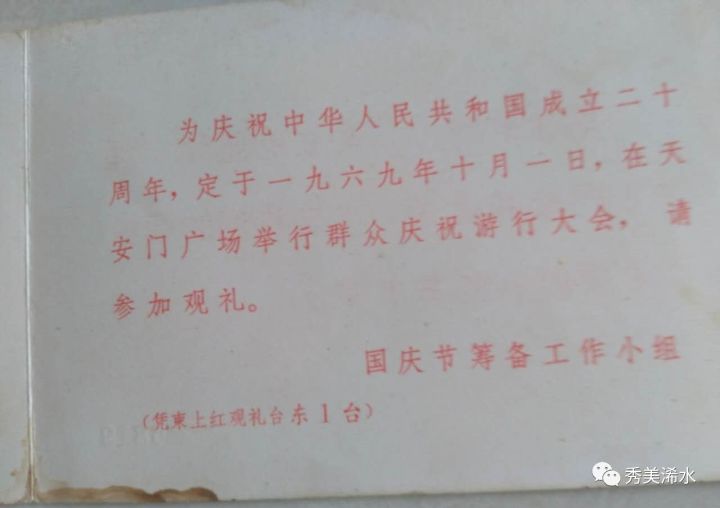 为庆祝中华人民共和国成立二十
周年，定于一九六九年十月一日，在天
安门广场举行群众庆祝游行大会，请
参加观礼。
国庆节筹备工作小组
（凭柬上红观礼台东1台）
秀美浠水